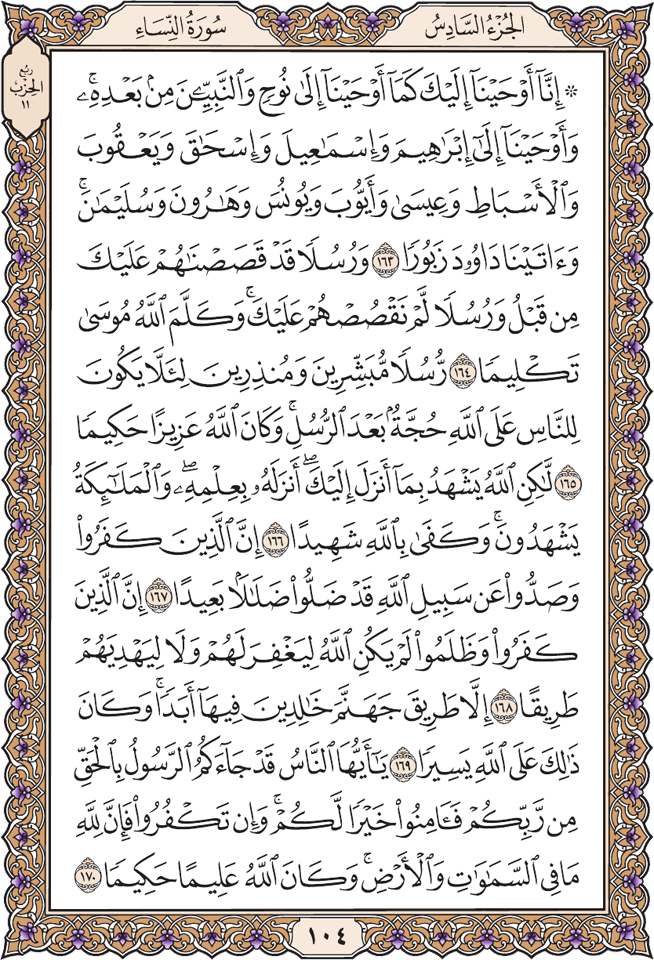 الجُزْءُ السَّادِسُ
سُورَةُ النِّسَاءِ
رُبع
الحِزْب
١١
۞ إِنَّآ أَوْحَيْنَآ إِلَيْكَ كَمَآ أَوْحَيْنَآ إِلَىٰ نُوحٖ وَٱلنَّبِيِّـۧنَ مِنۢ بَعْدِهِۦۚ
وَأَوْحَيْنَآ إِلَىٰٓ إِبْرَٰهِيمَ وَإِسْمَٰعِيلَ وَإِسْحَٰقَ وَيَعْقُوبَ
وَٱلْأَسْبَاطِ وَعِيسَىٰ وَأَيُّوبَ وَيُونُسَ وَهَٰرُونَ وَسُلَيْمَٰنَۚ
وَءَاتَيْنَا دَاوُۥدَ زَبُورٗا ١٦٣ وَرُسُلٗا قَدْ قَصَصْنَٰهُمْ عَلَيْكَ
مِن قَبْلُ وَرُسُلٗا لَّمْ نَقْصُصْهُمْ عَلَيْكَۚ وَكَلَّمَ ٱللَّهُ مُوسَىٰ
تَكْلِيمٗا ١٦٤ رُّسُلٗا مُّبَشِّرِينَ وَمُنذِرِينَ لِئَلَّا يَكُونَ
لِلنَّاسِ عَلَى ٱللَّهِ حُجَّةُۢ بَعْدَ ٱلرُّسُلِۚ وَكَانَ ٱللَّهُ عَزِيزًا حَكِيمٗا
١٦٥ لَّٰكِنِ ٱللَّهُ يَشْهَدُ بِمَآ أَنزَلَ إِلَيْكَۖ أَنزَلَهُۥ بِعِلْمِهِۦۖ وَٱلْمَلَٰٓئِكَةُ
يَشْهَدُونَۚ وَكَفَىٰ بِٱللَّهِ شَهِيدًا ١٦٦ إِنَّ ٱلَّذِينَ كَفَرُواْ
وَصَدُّواْ عَن سَبِيلِ ٱللَّهِ قَدْ ضَلُّواْ ضَلَٰلَۢا بَعِيدًا ١٦٧ إِنَّ ٱلَّذِينَ
كَفَرُواْ وَظَلَمُواْ لَمْ يَكُنِ ٱللَّهُ لِيَغْفِرَ لَهُمْ وَلَا لِيَهْدِيَهُمْ
طَرِيقًا ١٦٨ إِلَّا طَرِيقَ جَهَنَّمَ خَٰلِدِينَ فِيهَآ أَبَدٗاۚ وَكَانَ
ذَٰلِكَ عَلَى ٱللَّهِ يَسِيرٗا ١٦٩ يَٰٓأَيُّهَا ٱلنَّاسُ قَدْ جَآءَكُمُ ٱلرَّسُولُ بِٱلْحَقِّ
مِن رَّبِّكُمْ فَـَٔامِنُواْ خَيْرٗا لَّكُمْۚ وَإِن تَكْفُرُواْ فَإِنَّ لِلَّهِ
مَا فِي ٱلسَّمَٰوَٰتِ وَٱلْأَرْضِۚ وَكَانَ ٱللَّهُ عَلِيمًا حَكِيمٗا ١٧٠
١٠٤